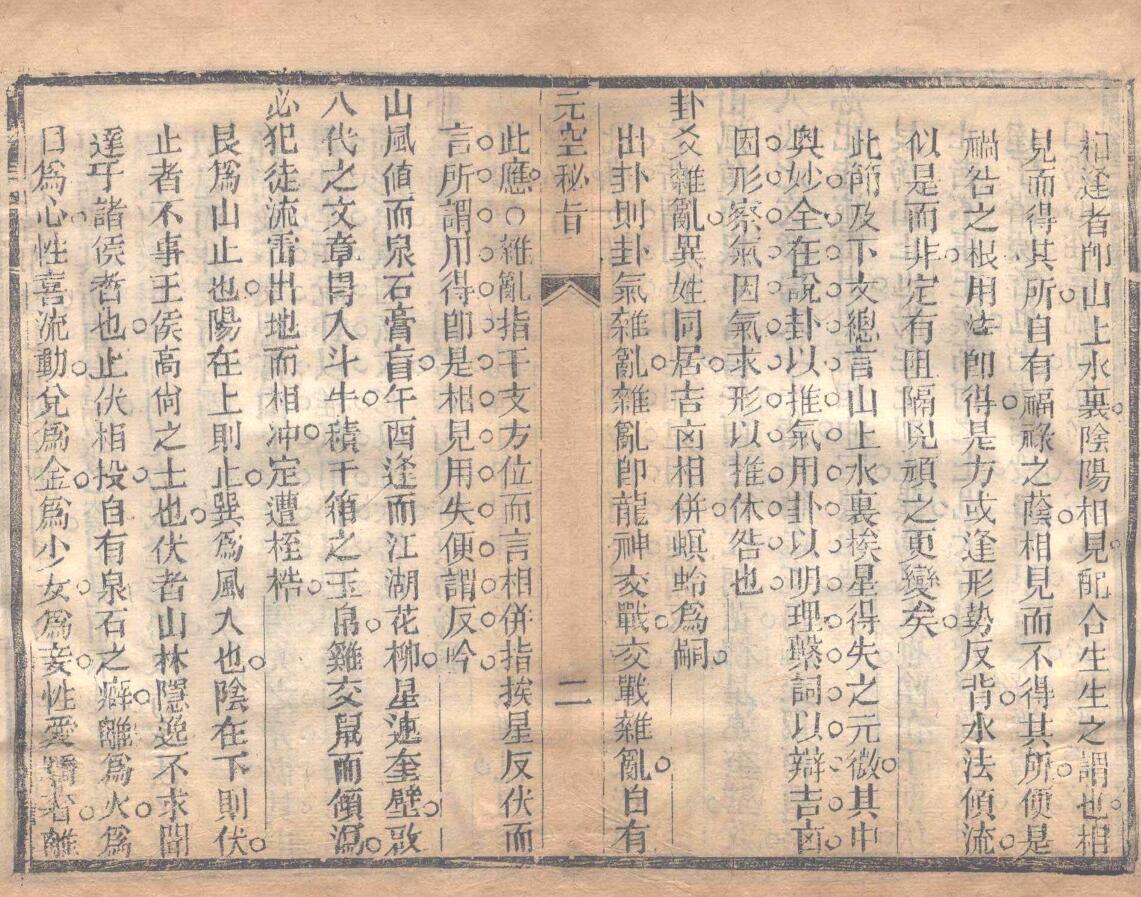 相逢者卽山上水裏陰陽相見配合生生之謂也相
見而得其所自有福祿之蔭相見而不得其所便是
禍咎之根用法卽得是方或逢形勢反背水法傾流
似是而非定有阻隔兇頑之更變矣
此節及下文總言山上水裏挨星得失之元微其中
奧妙全在說卦以推氣用卦以明理繫詞以辯吉凶
因形察氣因氣求形以推休咎也
卦爻雜亂異姓同居吉凶相併螟蛉爲嗣
出卦則卦氣雜亂雜亂卽龍神交戰交戰雜亂自有
元空秘旨
二
此應雜亂指干支方位而言相併指挨星反伏而
言所謂用得卽是相見用失便謂反吟
山風値而泉石膏肓午酉逢而江湖花柳星連奎壁啟
八代之文章胃入斗牛積千箱之玉帛雞交鼠而傾瀉
必犯徒流雷出地而相冲定遭桎梏
艮爲山止也陽在上則止巽爲風入也陰在下則伏
止者不事王侯高尙之士也伏者山林隱逸不求聞
達乎諸侯者也止伏相投自有泉石之癖離爲火爲
日爲心性喜流動兌爲金爲少女爲妾性愛離